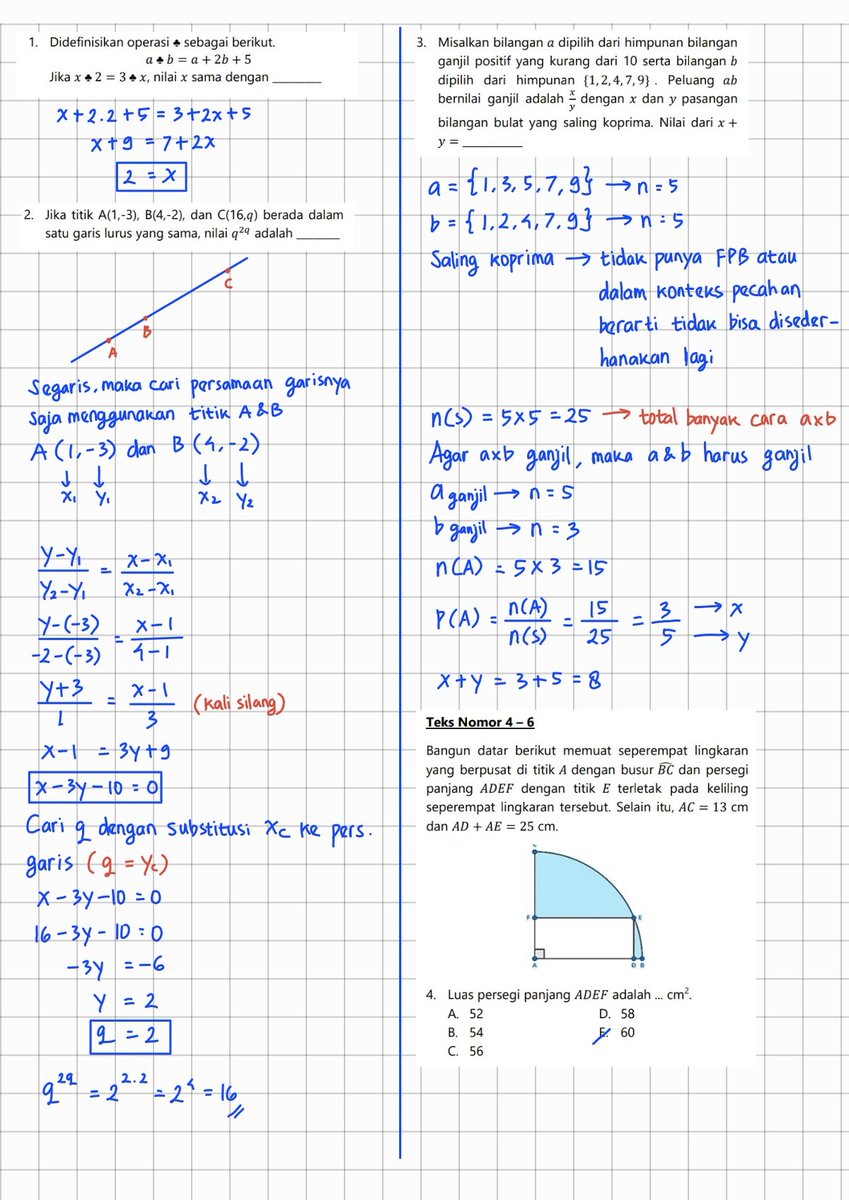 1. Didefinisikan operasi ♠ sebagai berikut.
a ♠ b = a + 2b + 5
Jika x ♠ 2 = 3 ♠ x, nilai x sama dengan ________
x + 2.2 + 5 = 3 + 2x + 5
x + 9 = 7 + 2x
2 = x
2. Jika titik A(1,-3), B(4,-2), dan C(16,q) berada dalam
satu garis lurus yang sama, nilai q^{2q} adalah _______
C
B
A
Segaris, maka cari persamaan garisnya
saja menggunakan titik A & B
A (1, -3) dan B (4, -2)
↓ ↓ ↓ ↓
x₁ y₁ x₂ y₂
y-y₁ / y₂-y₁ = x-x₁ / x₂-x₁
y-(-3) / -2-(-3) = x-1 / 4-1
y+3 / 1 = x-1 / 3 (kali silang)
x-1 = 3y+9
x-3y-10 = 0
Cari q dengan substitusi xc ke pers.
garis (q = yc)
x - 3y - 10 = 0
16 - 3y - 10 = 0
-3y = -6
y = 2
q = 2
q^{2q} = 2^{2.2} = 2^4 = 16
3. Misalkan bilangan a dipilih dari himpunan bilangan
ganjil positif yang kurang dari 10 serta bilangan b
dipilih dari himpunan {1,2,4,7,9}. Peluang ab
bernilai ganjil adalah x/y dengan x dan y pasangan
bilangan bulat yang saling koprima. Nilai dari x +
y = _________
a = {1,3,5,7,9} → n = 5
b = {1,2,4,7,9} → n = 5
Saling koprima → tidak punya FPB atau
dalam konteks pecahan
berarti tidak bisa diseder-
hanakan lagi
n(s) = 5×5 = 25 → total banyak cara axb
Agar axb ganjil, maka a & b harus ganjil
a ganjil → n = 5
b ganjil → n = 3
n(A) = 5 × 3 = 15
P(A) = n(A) / n(s) = 15 / 25 = 3 / 5 → x → y
x + y = 3 + 5 = 8
Teks Nomor 4 – 6
Bangun datar berikut memuat seperempat lingkaran
yang berpusat di titik A dengan busur BC dan persegi
panjang ADEF dengan titik E terletak pada keliling
seperempat lingkaran tersebut. Selain itu, AC = 13 cm
dan AD + AE = 25 cm.
F E
A D B
4. Luas persegi panjang ADEF adalah ... cm².
A. 52 D. 58
B. 54 E. 60
C. 56